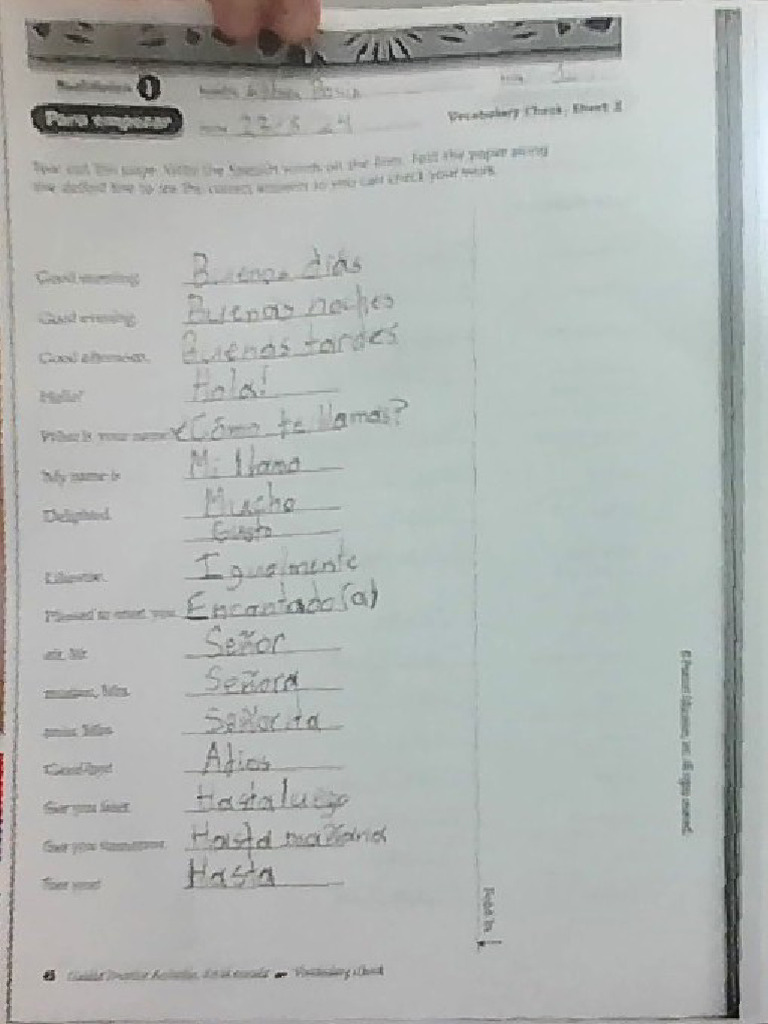 1
Para empezar
Vocabulary Check, Sheet 2
Tear out this page. Write the Spanish words on the lines. Fold the paper along
the dotted line to see the correct answers so you can check your work.
Good morning. Buenos días
Good evening. Buenas noches
Good afternoon. Buenas tardes
Hello! Hola!
What is your name? ¿Cómo te llamas?
My name is Mi llamo
Delighted. Mucho
Gusto
Likewise. Igualmente
Pleased to meet you. Encantado(a)
sir, Mr. Señor
madam, Mrs. Señora
miss, Miss Señorita
Good-bye! Adios
See you later. Hasta luego
See you tomorrow. Hasta mañana
See you! Hasta
Fold In
© Pearson Education, Inc. All rights reserved.
Vocabulary Check